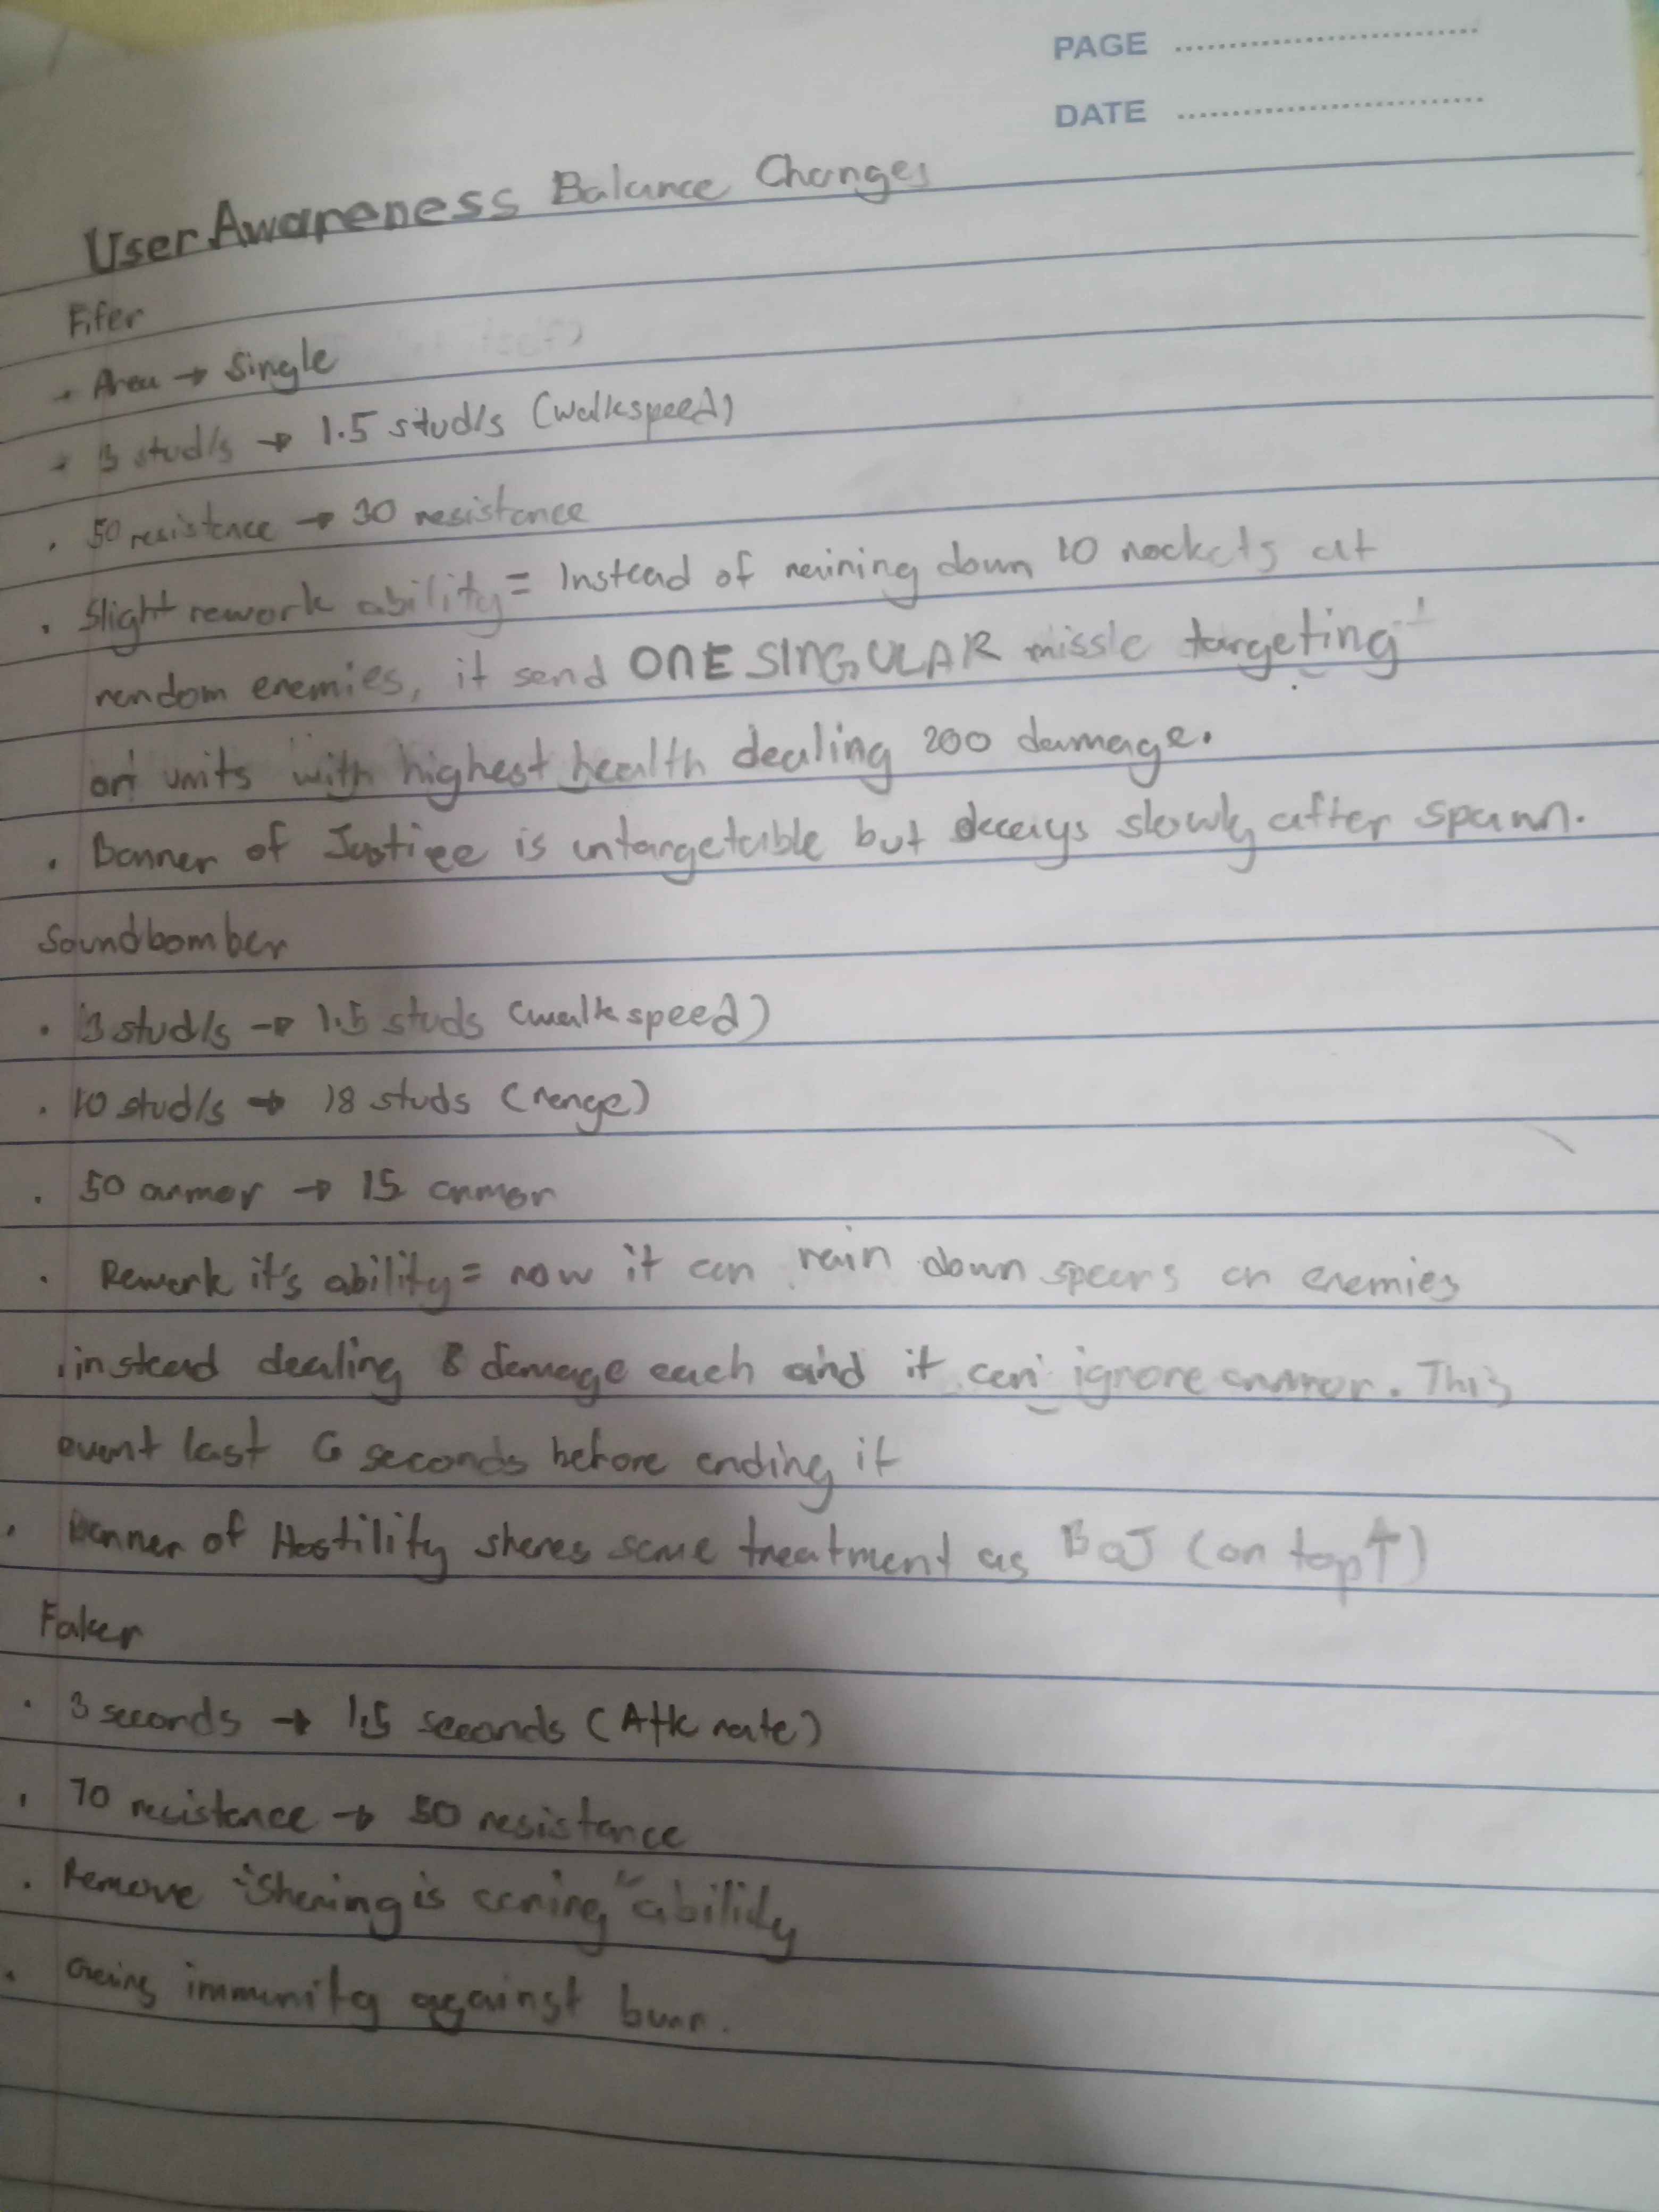 PAGE
DATE
User Awareness Balance Changes
Fifer
Area → Single
3 stud/s → 1.5 stud/s (walkspeed)
• 50 resistance → 30 resistance
• Slight rework ability = Instead of raining down 10 rockets at
random enemies, it send ONE SINGULAR missle targeting
on units with highest health dealing 200 damage.
• Banner of Justice is untargetable but decays slowly after spawn.
Soundbomber
• 3 stud/s → 1.5 studs (walkspeed)
• 10 stud/s → 18 studs (range)
• 50 armor → 15 armor
• Rework it's ability = now it can rain down spears on enemies
instead dealing 8 damage each and it can ignore armor. This
event last 6 seconds before ending it
• Banner of Hostility shares same treatment as BoJ (on top↑)
Faker
• 3 seconds → 1.5 seconds (Atk rate)
• 70 resistance → 50 resistance
• Remove "Sharing is caring" ability
• immunity against burn.